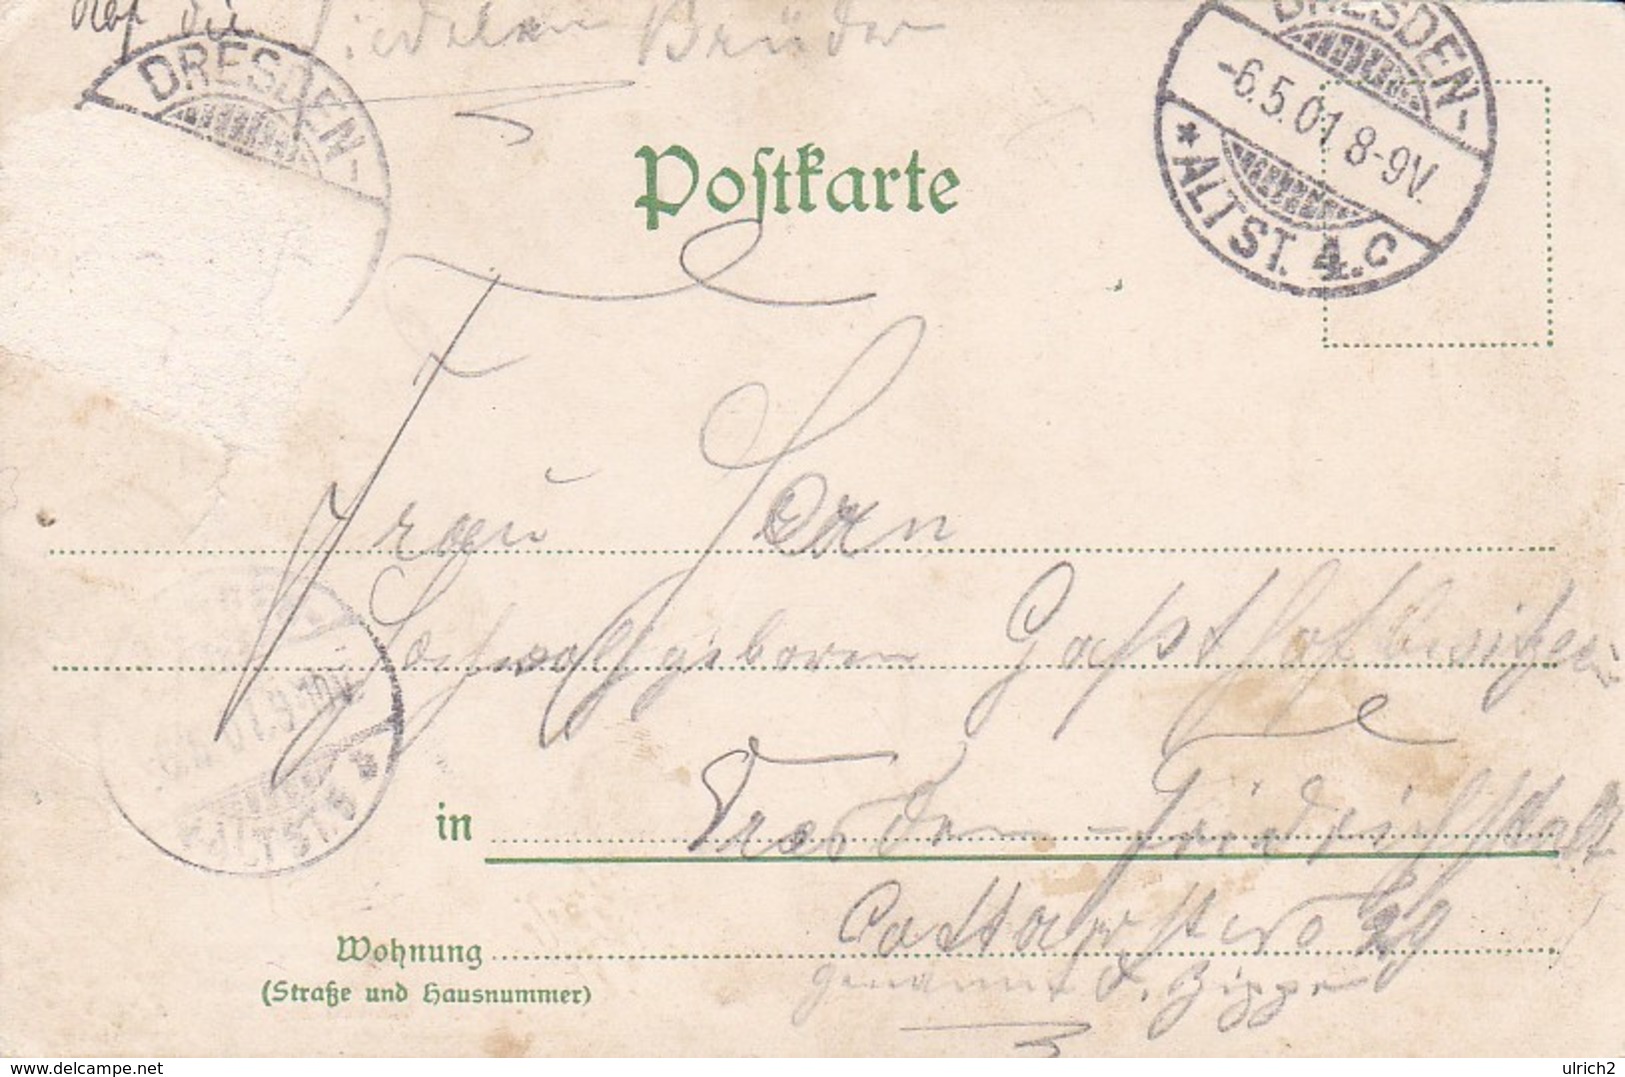 die Brüder
DRESDEN-
DRESDEN-
-6.5.01.8-9V.
* ALTST. 4.c
Postkarte
Frau
Hochwohlgeboren Gasthofbesitzerin
in Dresden-Friedrichstadt
ALTST. 5
Wohnung 29
(Straße und Hausnummer)
genannt z. Zippe
delcampe.net
ulrich2